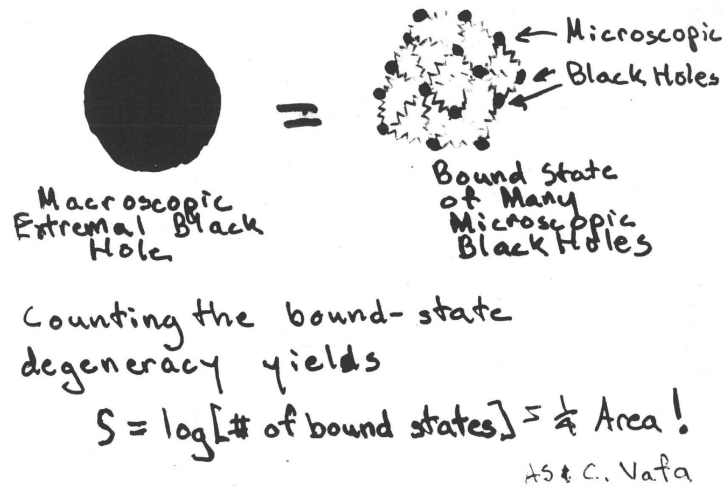 Microscopic
Black Holes
Macroscopic
Extremal Black
Hole
=
Bound State
of Many
Microscopic
Black Holes
Counting the bound-state
degeneracy yields
S = log[# of bound states] = 1/4 Area!
AS & C. Vafa